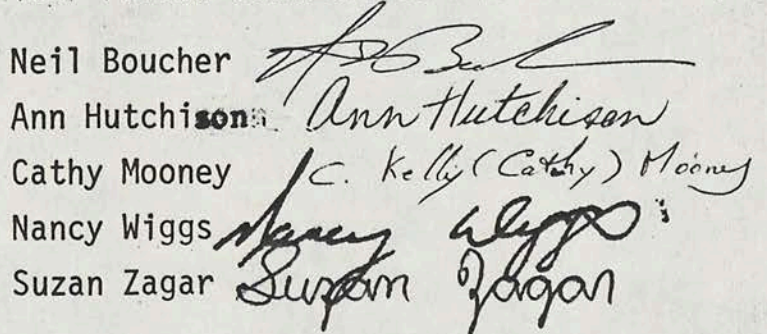 Neil Boucher
Ann Hutchison Ann Hutchison
Cathy Mooney C. Kelly (Cathy) Mooney
Nancy Wiggs Nancy Wiggs
Suzan Zagar Suzan Zagar